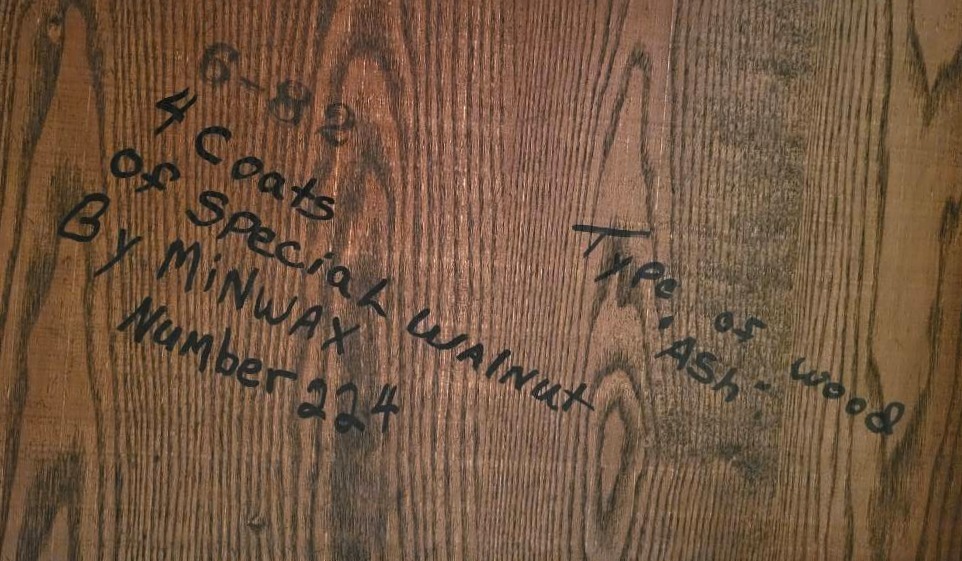 6-82
4 Coats
of Special Walnut
By MiNWAX
Number 224
Type of wood
"ASh"